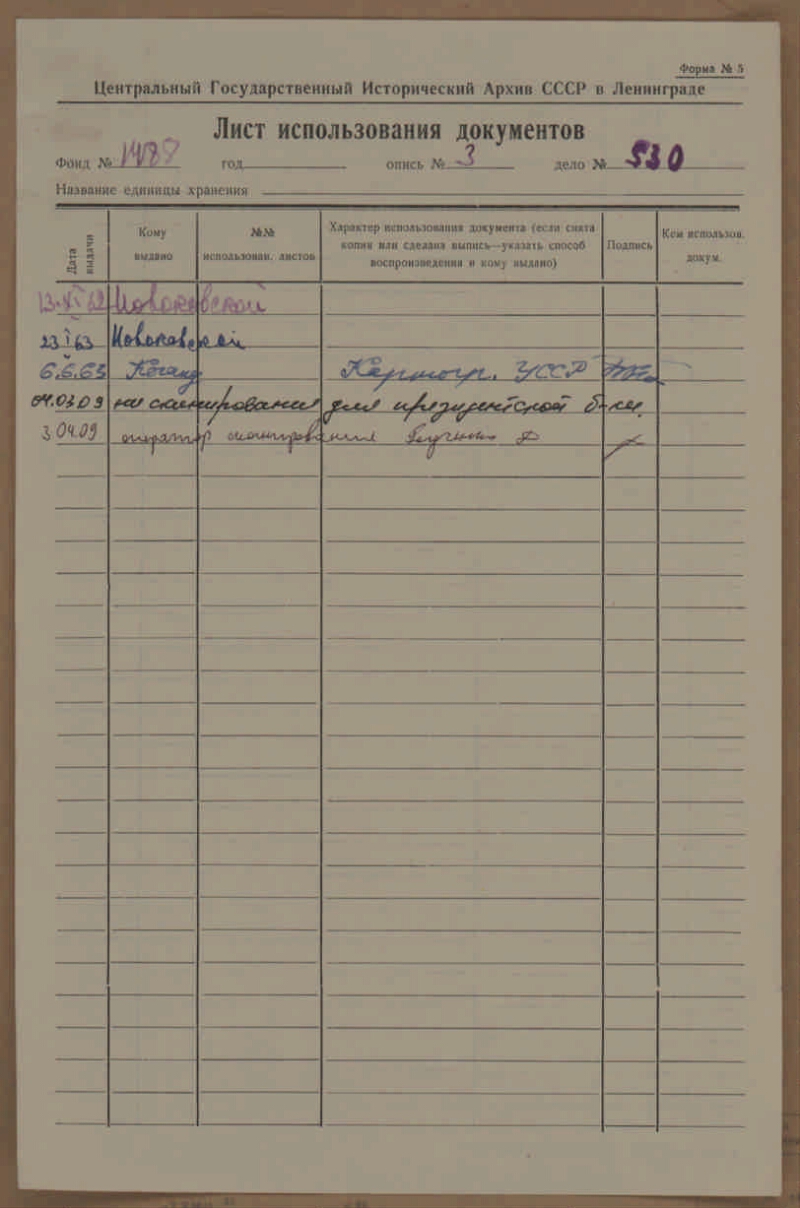 Форма № 5
Центральный Государственный Исторический Архив СССР в Ленинграде
Лист использования документов
Фонд № 1488 год опись № 3 дело № 530
Название единицы хранения
Дата выдачи
Кому выдано
№№ использован. листов
Характер использования документа (если снята копия или сделана выпись—указать способ воспроизведения и кому выдано)
Подпись
Кем использов. докум.
6.6.63 Коган УССР
04.03 09 на сканирование для президентской б-ки
3 04.09 оператор сканирования